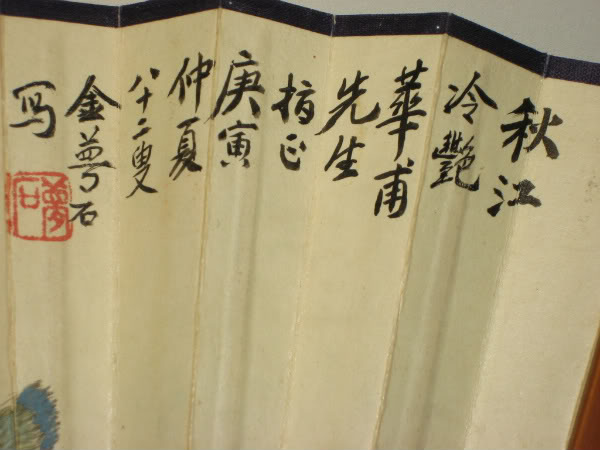 秋江
冷艷
華甫
先生
指正
庚寅
仲夏
八十二叟
金夢石
写
夢石